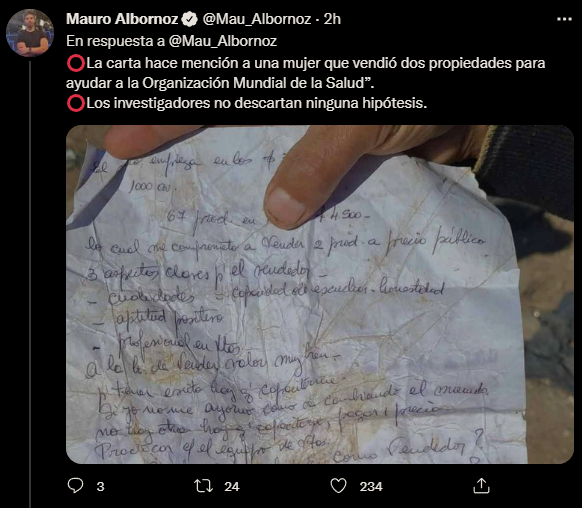 Mauro Albornoz @Mau_Albornoz · 2h
En respuesta a @Mau_Albornoz
⭕La carta hace mención a una mujer que vendió dos propiedades para
ayudar a la Organización Mundial de la Salud”.
⭕Los investigadores no descartan ninguna hipótesis.
empieza en los $
1000
67 prod. en $ 4500-
lo cual me comprometo a Vender 2 prod. a precio público
3 aspectos claves p' el vendedor -
- cualidades = capacidad de escuchar - honestidad
- aptitud positivo
- profesional en
A la h. de Vender valor muy bien -
p' tener exito hay q'
Si yo no me como va cambiando el mundo
no hay otra
el equipo de
como Vendedor?
3 24 234